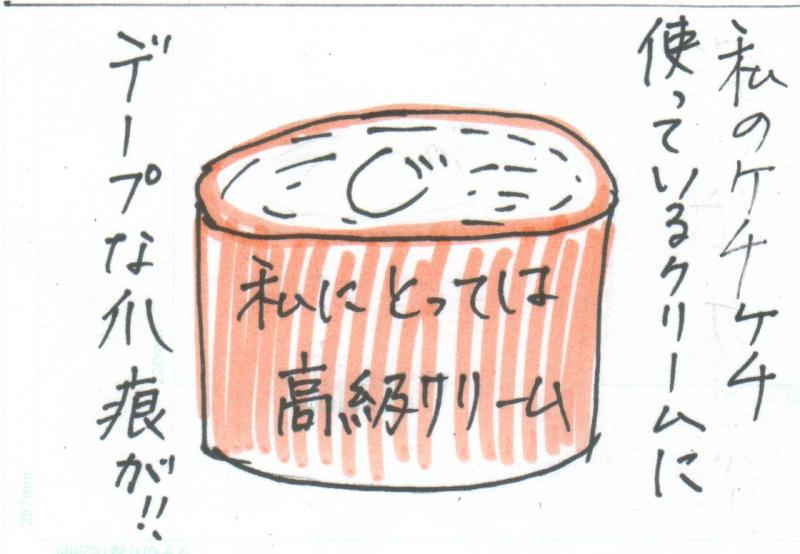 私のケチケチ
使っているクリームに
私にとっては
高級クリーム
デープな爪痕が!!